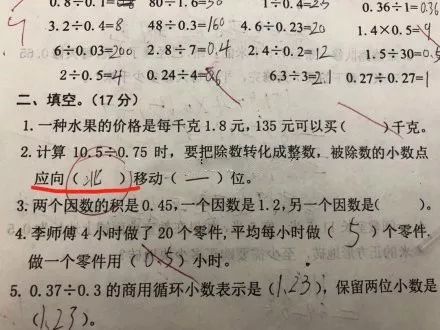 0.8÷0.1= 80÷1.6=50 0.36÷1=0.36
3.2÷0.4=8 48÷0.3=160 4.6÷0.23=20 1.4×0.5=
6÷0.03=200 2.8÷7=0.4 2.4÷0.2=12 1.5÷30=0.5
2÷0.5=4 0.24÷4= 6.3÷3=2.1 0.27÷0.27=1
二、填空。(17分)
1.一种水果的价格是每千克1.8元,135元可以买( )千克。
2.计算 10.5÷0.75 时,要把除数转化成整数,被除数的小数点
应向(北)移动(一)位。
3.两个因数的积是0.45,一个因数是1.2,另一个因数是( )。
4.李师傅4小时做了20个零件,平均每小时做(5)个零件.
做一个零件用( )小时。
5. 0.37÷0.3的商用循环小数表示是(1.23),保留两位小数是
(1.23)。